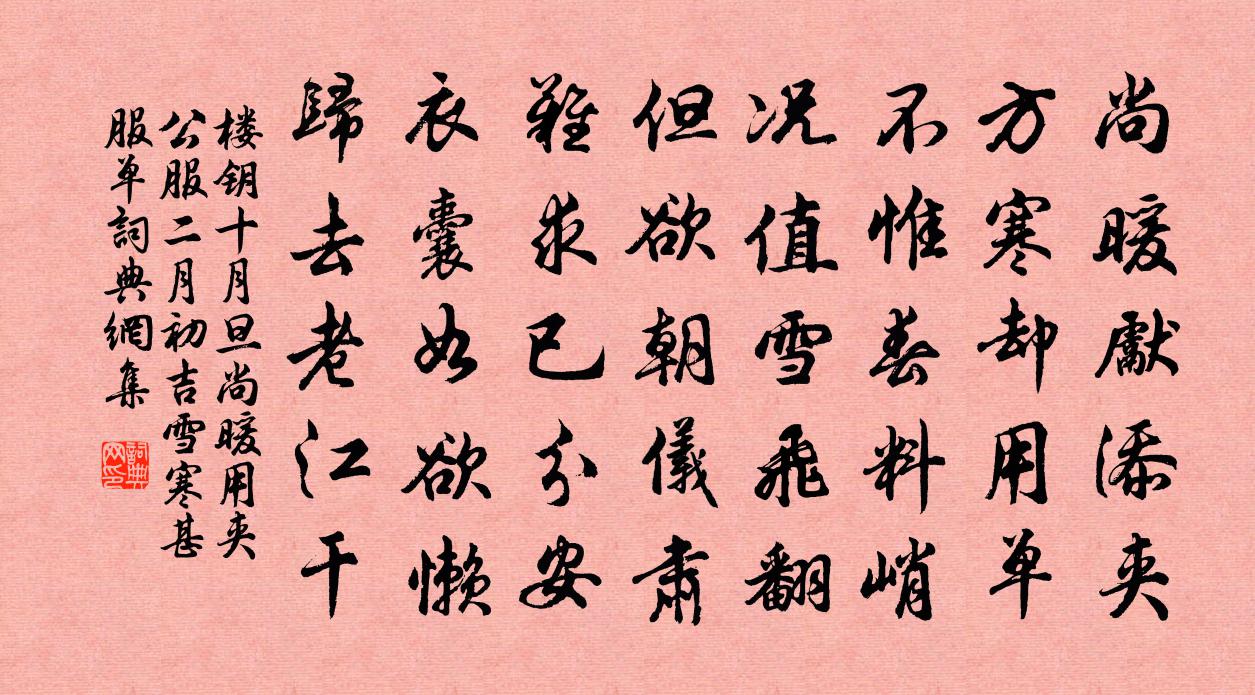 尚暖獻添夹
方寒却用单
不惟春料峭
况值雪飛翻
但欲朝儀肅
難求已分安
衣囊如欲懶
歸去老江干
楼钥十月旦尚暖用夹
公服二月初吉雪寒甚
服单詞典網集
詞典
网印